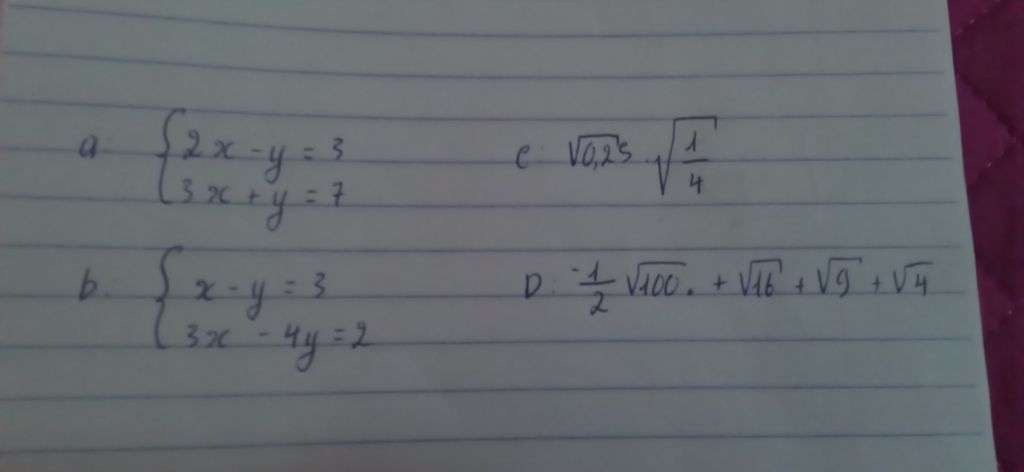 a. { 2x - y = 3
3x + y = 7
c. √0,25 . √(1/4)
b. { x - y = 3
3x - 4y = 2
D: -1/2 √100. + √16 + √9 + √4